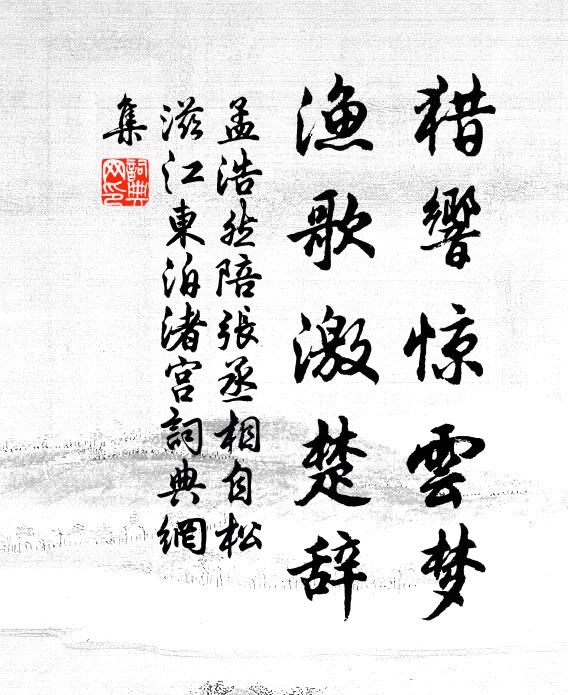 猎響惊雲梦
渔歌激楚辞
孟浩然陪張丞相自松
滋江東泊渚宮詞典網
集
詞典
网印